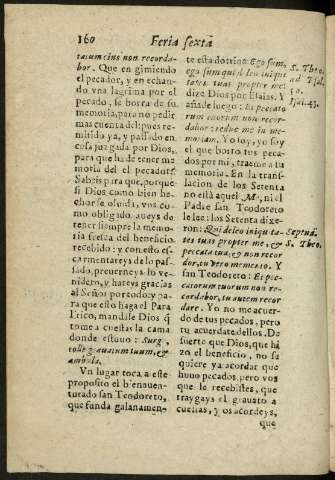 160
Feria sexta
tatum eius non recorda-
bor. Que en gimiendo
el pecador, y en echan-
do vna lagrima por el
pecado, se borra de su
memoria, para no pedir
mas cuenta del: pues re-
mitido ya, y passado en
cosa juzgada por Dios,
para que ha de tener me
moria del el pecador?
Sabeis para que, porque
si Dios como bien he-
chor se oluida, vos co-
mo obligado aueys de
tener siempre la memo-
ria fresca del beneficio
recebido: y con esto es-
carmentareys de lo pas-
sado, preuerneys lo ve-
nidero, y hareys gracias
al Señor por todo: y pa-
ra que esto haga el Para
litico, mandale Dios q̃
tome a cuestas la cama
donde estuuo: Surge,
tolle grauatum tuum, &
ambula.
Vn lugar toca a este
proposito el bienauen-
turado san Teodoreto,
que funda galanamen-
te esta dotrina: Ego sum,
ego sum qui deleo iniqui
tates tuas propter me:
dize Dios por Esaias. Y
añade luego: Et peccato
rum tuorum non recor-
dabor: reduc me in me-
moriam. Yo soy, yo soy
el que borro tus peca-
dos por mi, traeme a tu
memoria. En la trans-
lacion de los Setenta
no està aquel Me, ni el
Padre san Teodoreto
le lee: los Setenta dixe-
ron: Qui deleo iniquita-
tes tuas propter me, &
peccata tua, & non recor
dor, tu vero memento. Y
san Teodoreto: Et pec-
catorum tuorum non re-
cordabor, tu autem recor
dare. Yo no me acuer-
do de tus pecados, pero
tu acuerdate dellos. De
suerte que Dios, que hà
zo el beneficio, no se
quiere ya acordar que
huuo pecados: pero vos
que le recebistes, que
traygays el grauato a
cuestas, y os acordeys,
que
S. Theo.
ad Psal.
50.
Isai. 43.
Septuā.
S. Theo.